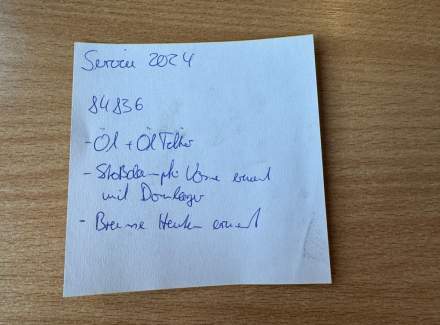 Service 2024
84836
- Öl + Öl Filter
- Stoßdämpfer Vorne erneut
mit Domlager
- Bremse Hinten erneut